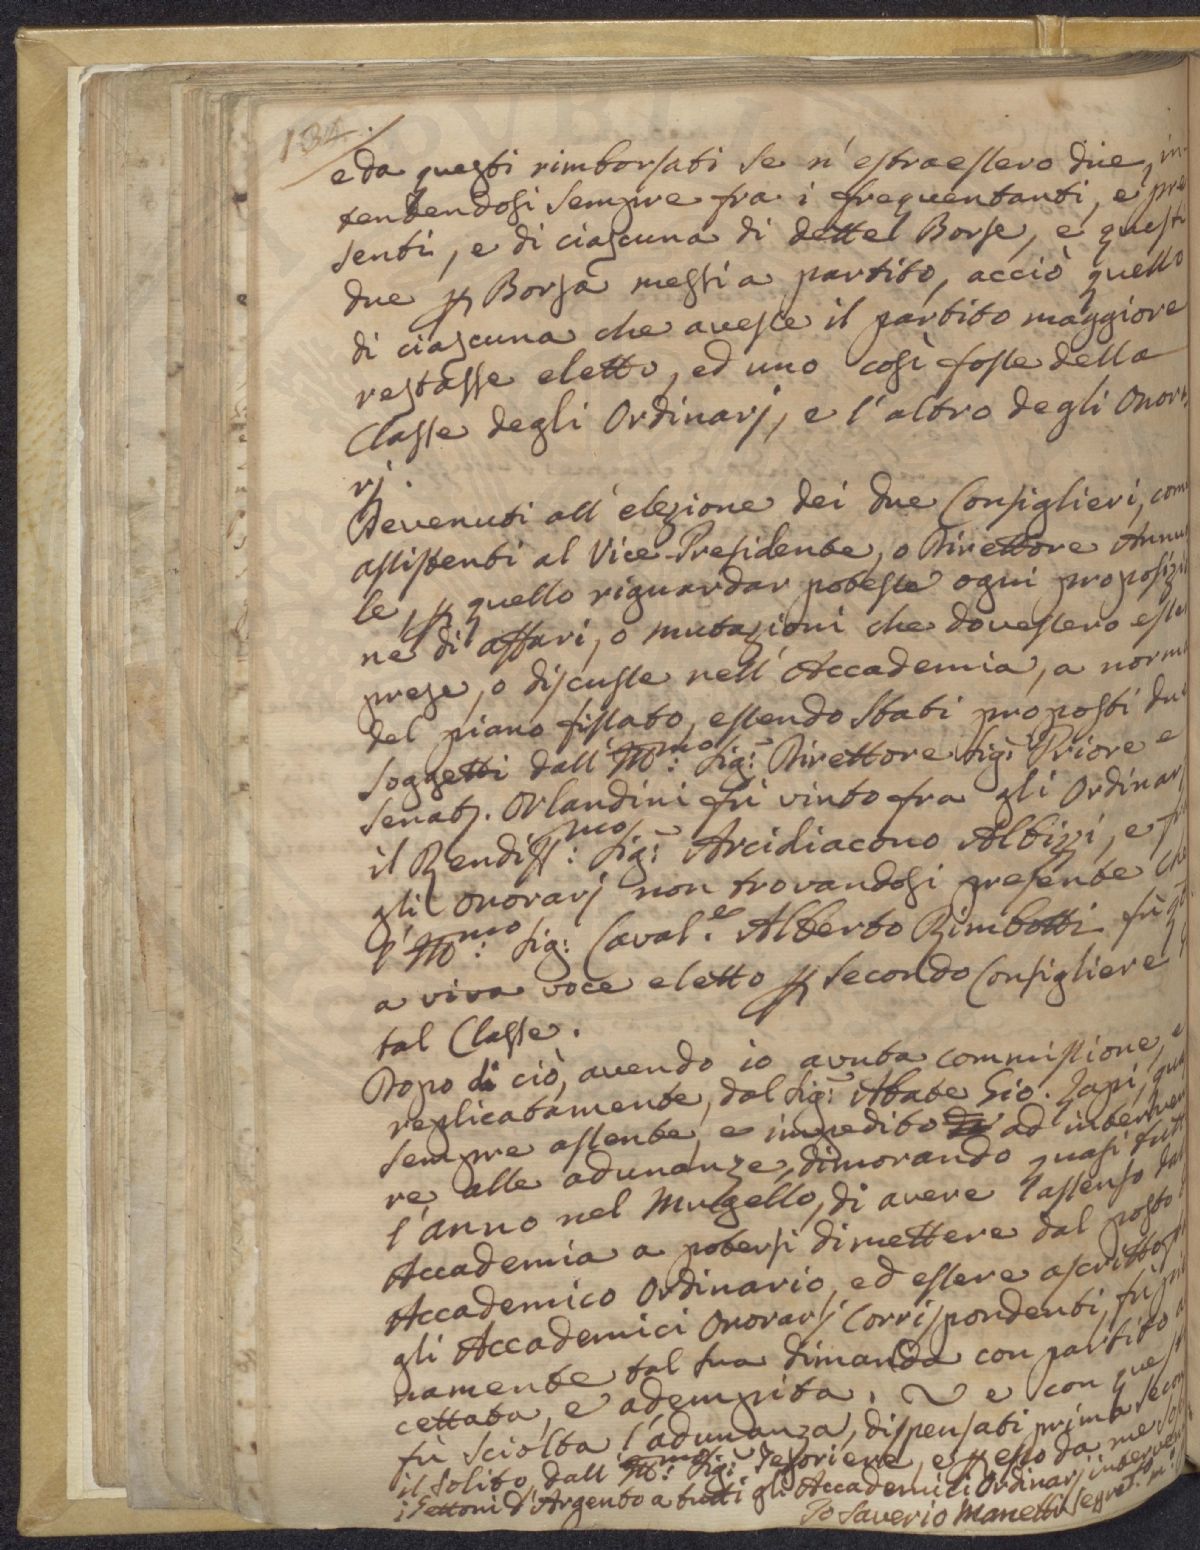 134.
e da questi rimborsati se n'estraessero due, in
tendendosi sempre fra i frequentanti, e pre
senti, e di ciascuna di dette Borse, e questi
due p Borsa messi a partito, acciò quello
di ciascuna che avesse il partito maggiore
restasse eletto, ed uno così fosse della
Classe degli Ordinarj, e l'altro degli Onora
rj.
Devenuti all'elezione dei due Consiglieri, come
assistenti al Vice-Presidente, o Direttore Annua
le, p quello riguardar potesse ogni proposizio
ne di affari, o mutazioni che dovessero esser
prese, o discusse nell'Accademia, a norma
del piano fissato, essendo stati proposti due
soggetti dall'Illmo: Sig: Direttore Sig: Priore e
Senat. Orlandini fù vinto fra gli Ordinarj
il Rendissmo: Sig: Arcidiacono Albizi, e fra
gli Onorarj non trovandosi presente che
l'Illmo: Sig: Caval.e Alberto Rimbotti fù
a viva voce eletto p secondo Consigliere
tal Classe.
Dopo di ciò, avendo io avuta commissione, e
replicatamente, dal Sig: Abate Gio. Lapi, quasi
sempre assente, e impedito ad interveni
re alle adunanze, dimorando quasi tutto
l'anno nel Mugello, di avere l'assenso dall'
Accademia a potersi dimettere dal posto
Accademico Ordinario, ed essere ascritto fra
gli Accademici Onorarj Corrispondenti, fù pie
namente tal sua dimanda con partito ac
cettata, e adempita. e con questo
fù sciolta l'adunanza, dispensati prima secon
il solito dall'Illmo: Sig: Tesoriere, e p esso da me
i Gettoni d'Argento a tutti gli Accademici Ordinarj interven
Io Saverio Manetti Segret.